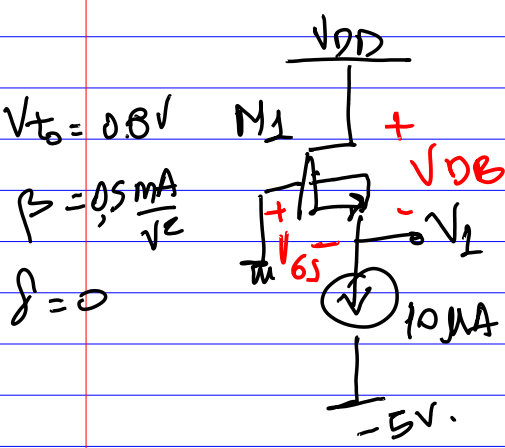 VDD
Vt₀ = 0.8V
M1
+
VDB
β = 0,5 mA/V²
+
-
V1
VGS
-
δ = 0
10 μA
-5V.